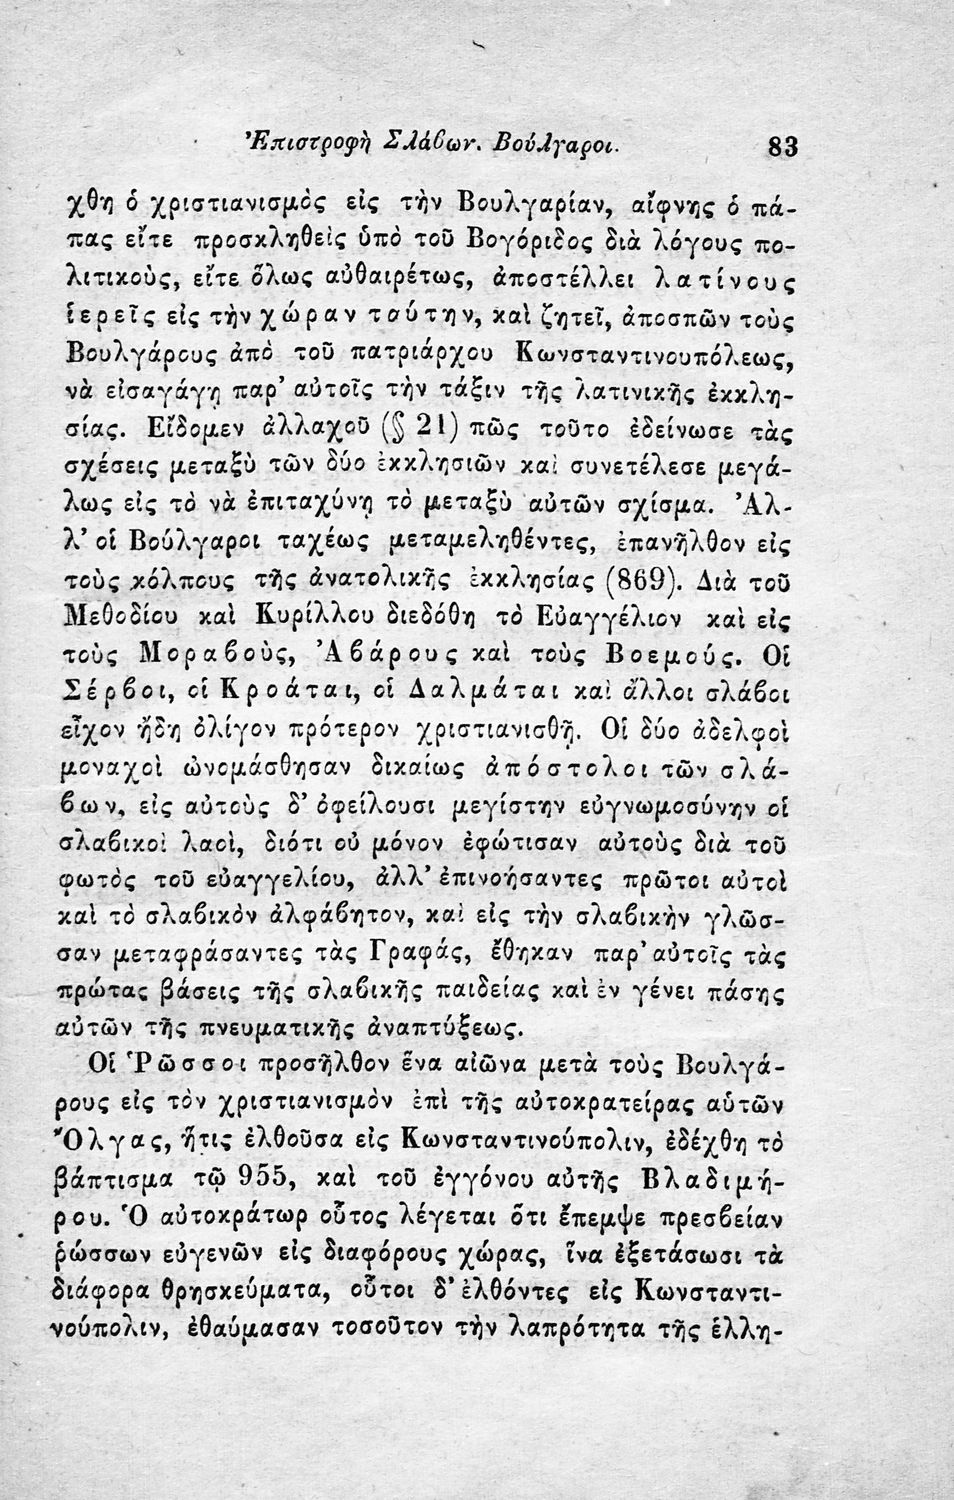 Ἐπιστροφὴ Σλάβων. Βούλγαροι. 83
χθη ὁ χριστιανισμὸς εἰς τὴν Βουλγαρίαν, αἴφνης ὁ πά-
πας εἴτε προσκληθεὶς ὑπὸ τοῦ Βογόριδος διὰ λόγους πο-
λιτικοὺς, εἴτε ὅλως αὐθαιρέτως, ἀποστέλλει λατίνους
ἱερεῖς εἰς τὴν χώραν ταύτην, καὶ ζητεῖ, ἀποσπῶν τοὺς
Βουλγάρους ἀπὸ τοῦ πατριάρχου Κωνσταντινουπόλεως,
νὰ εἰσαγάγῃ παρ' αὐτοῖς τὴν τάξιν τῆς λατινικῆς ἐκκλη-
σίας. Εἴδομεν ἀλλαχοῦ (§ 21) πῶς τοῦτο ἐδείνωσε τὰς
σχέσεις μεταξὺ τῶν δύο ἐκκλησιῶν καὶ συνετέλεσε μεγά-
λως εἰς τὸ νὰ ἐπιταχύνῃ τὸ μεταξὺ αὐτῶν σχίσμα. Ἀλ-
λ' οἱ Βούλγαροι ταχέως μεταμεληθέντες, ἐπανῆλθον εἰς
τοὺς κόλπους τῆς ἀνατολικῆς ἐκκλησίας (869). Διὰ τοῦ
Μεθοδίου καὶ Κυρίλλου διεδόθη τὸ Εὐαγγέλιον καὶ εἰς
τοὺς Μοραβοὺς, Ἀβάρους καὶ τοὺς Βοεμούς. Οἱ
Σέρβοι, οἱ Κροάται, οἱ Δαλμάται καὶ ἄλλοι σλάβοι
εἶχον ἤδη ὀλίγον πρότερον χριστιανισθῆ. Οἱ δύο ἀδελφοὶ
μοναχοὶ ὠνομάσθησαν δικαίως ἀπόστολοι τῶν σλά-
βων, εἰς αὐτοὺς δ' ὀφείλουσι μεγίστην εὐγνωμοσύνην οἱ
σλαβικοὶ λαοὶ, διότι οὐ μόνον ἐφώτισαν αὐτοὺς διὰ τοῦ
φωτὸς τοῦ εὐαγγελίου, ἀλλ' ἐπινοήσαντες πρῶτοι αὐτοὶ
καὶ τὸ σλαβικὸν ἀλφάβητον, καὶ εἰς τὴν σλαβικὴν γλῶσ-
σαν μεταφράσαντες τὰς Γραφάς, ἔθηκαν παρ' αὐτοῖς τὰς
πρώτας βάσεις τῆς σλαβικῆς παιδείας καὶ ἐν γένει πάσης
αὐτῶν τῆς πνευματικῆς ἀναπτύξεως.
Οἱ Ῥῶσσοι προσῆλθον ἕνα αἰῶνα μετὰ τοὺς Βουλγά-
ρους εἰς τὸν χριστιανισμὸν ἐπὶ τῆς αὐτοκρατείρας αὑτῶν
Ὄλγας, ἥτις ἐλθοῦσα εἰς Κωνσταντινούπολιν, ἐδέχθη τὸ
βάπτισμα τῷ 955, καὶ τοῦ ἐγγόνου αὐτῆς Βλαδιμή-
ρου. Ὁ αὐτοκράτωρ οὗτος λέγεται ὅτι ἔπεμψε πρεσβείαν
ῥώσσων εὐγενῶν εἰς διαφόρους χώρας, ἵνα ἐξετάσωσι τὰ
διάφορα θρησκεύματα, οὗτοι δ' ἐλθόντες εἰς Κωνσταντι-
νούπολιν, ἐθαύμασαν τοσοῦτον τὴν λαπρότητα τῆς ἑλλη-